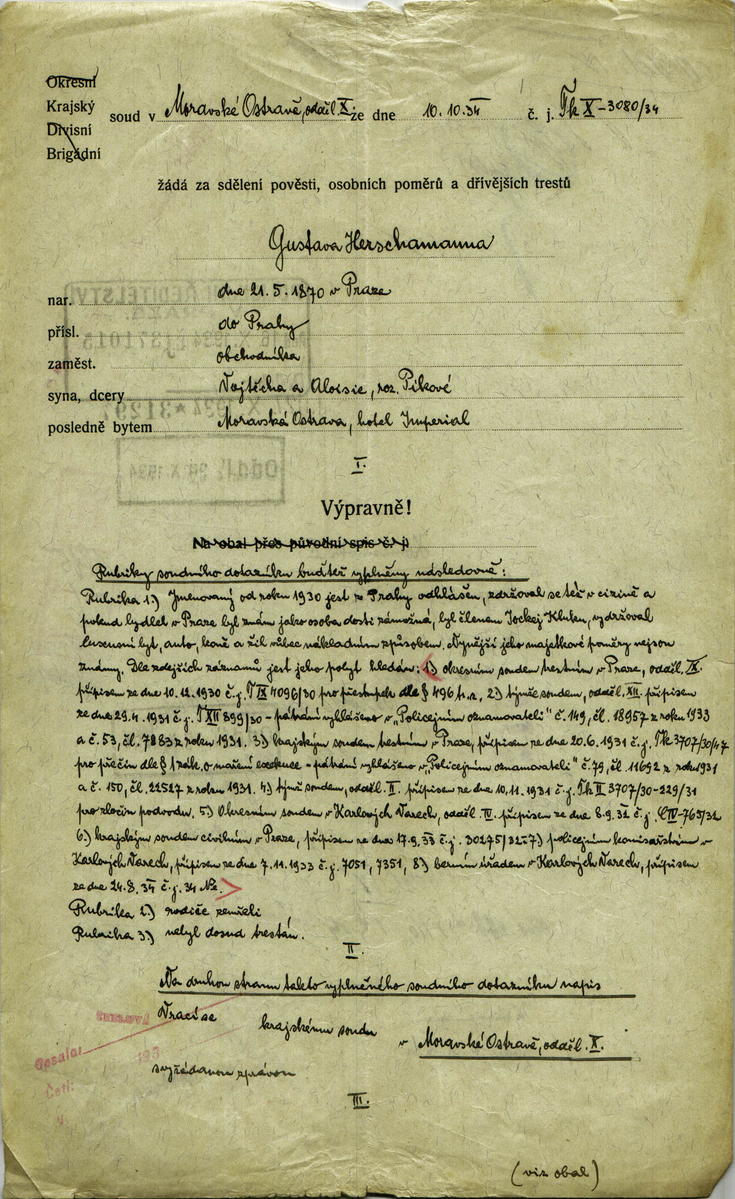 Okresní
Krajský
Divisní
Brigádní
soud v Moravské Ostravě, odděl. X. ze dne 10.10.34 č. j. Tk X-3080/34
žádá za sdělení pověsti, osobních poměrů a dřívějších trestů
Gustava Herschamanna
nar. dne 21.5.1870 v Praze
přísl. do Prahy
zaměst. obchodníka
syna, dcery Vojtěcha a Aloisie, roz. Pikové
posledně bytem Moravská Ostrava, hotel Imperial
I.
Výpravně!
Na obal přes původní spis č. j.
Rubriky soudního dotazníku buďtež vyplněny následovně:
Rubrika 1.) Jmenovaný od roku 1930 jest z Prahy odhlášen, zdržoval se též v cizině a
pokud bydlel v Praze byl znám jako osoba dosti zámožná, byl členem Jockej Klubu, vydržoval
luxusní byt, auto, koně a žil vůbec nákladným způsobem. Nynější jeho majetkové poměry nejsou
známy. Dle zdejších záznamů jest jeho pobyt hledán: 1) okresním soudem trestním v Praze, odděl. IX.
přípisem ze dne 10.12.1930 č.j. T IX 4096/30 pro přestupek dle § 496 tr.z., 2) týmže soudem, odděl. XII. přípisem
ze dne 29.4.1931 č.j. T XII 899/30 - pátrání vyhlášeno v „Policejním oznamovateli" č. 149, čl. 18957 z roku 1933
a č. 53, čl. 7883 z roku 1931. 3) krajským soudem trestním v Praze, přípisem ze dne 20.6.1931 č.j. Tk 3707/30/47
pro přečin dle § 1 zák. o maření exekuce - pátrání vyhlášeno v „Policejním oznamovateli" č. 79, čl. 11692 z roku 1931
a č. 150, čl. 22527 z roku 1931. 4) týmž soudem, odděl. II. přípisem ze dne 10.11.1931 č.j. Tk II 3707/30-229/31
pro zločin podvodu. 5.) Okresním soudem v Karlových Varech, odděl. IV. přípisem ze dne 8.9.32 č.j. C IV-765/32
6.) krajským soudem civilním v Praze, přípisem ze dne 17.9.33 č.j. 30275/32-7.) policejním komisařstvím v
Karlových Varech, přípisem ze dne 7.11.1933 č.j. 7051, 7351, 8.) berním úřadem v Karlových Varech, přípisem
ze dne 24.8.34 č.j. 34
Rubrika 2.) rodiče zemřeli
Rubrika 3.) nebyl dosud trestán.
II.
Na druhou stranu takto vyplněného soudního dotazníku napis
Vrací se krajskému soudu v Moravské Ostravě, odděl. X.
s vyžádanou zprávou
Opsala:
Četl:
III.
(viz obal)